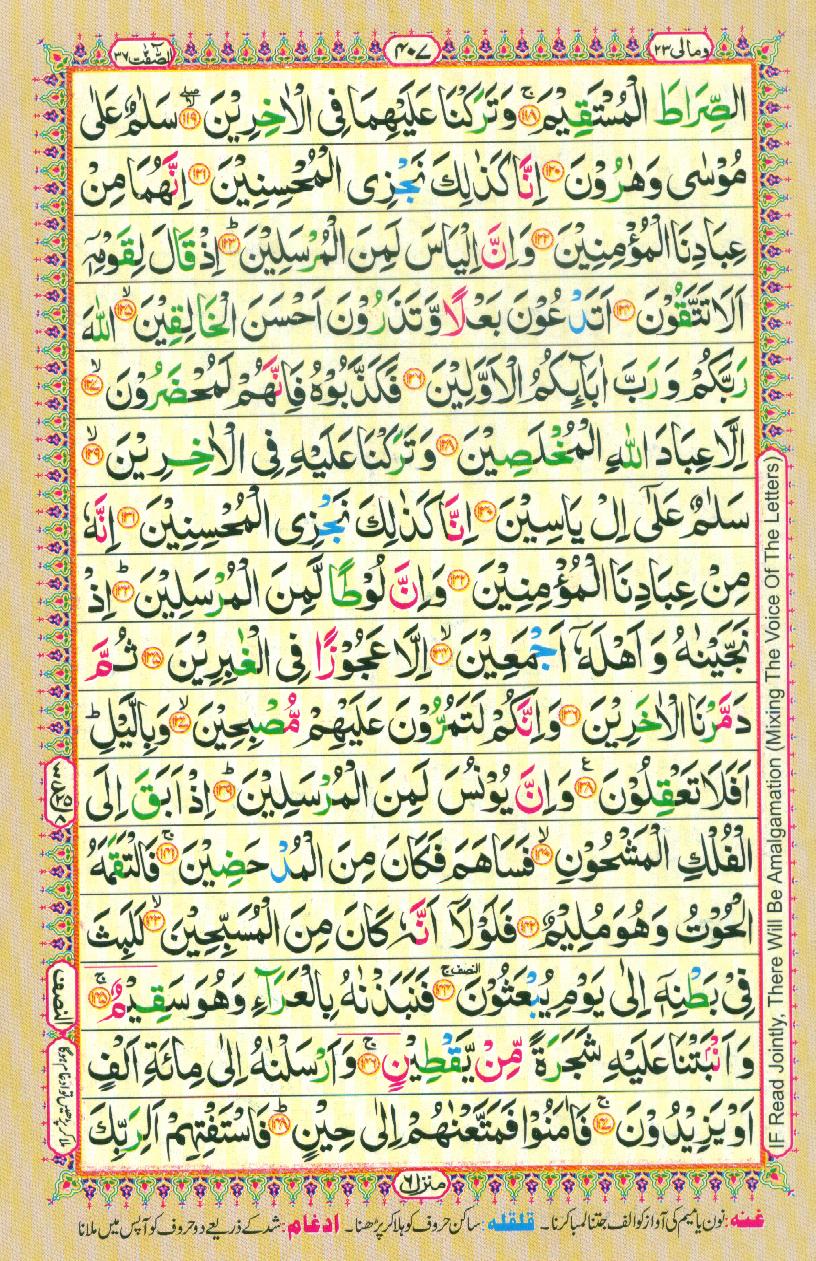 وَمَالِیَ ۲۳
۴۰۷
اَلصّٰٓفّٰت ۳۷
الصِّرَاطَ الْمُسْتَقِیْمَ ﴿۱۱۸﴾ۚ وَ تَرَكْنَا عَلَیْهِمَا فِی الْاٰخِرِیْنَ ﴿۱۱۹﴾ۙ سَلٰمٌ عَلٰی
مُوْسٰی وَ هٰرُوْنَ ﴿۱۲۰﴾ اِنَّا كَذٰلِكَ نَجْزِی الْمُحْسِنِیْنَ ﴿۱۲۱﴾ اِنَّهُمَا مِنْ
عِبَادِنَا الْمُؤْمِنِیْنَ ﴿۱۲۲﴾ وَ اِنَّ اِلْیَاسَ لَمِنَ الْمُرْسَلِیْنَ ﴿۱۲۳﴾ؕ اِذْ قَالَ لِقَوْمِهٖۤ
اَلَا تَتَّقُوْنَ ﴿۱۲۴﴾ اَتَدْعُوْنَ بَعْلًا وَّ تَذَرُوْنَ اَحْسَنَ الْخَالِقِیْنَ ﴿۱۲۵﴾ۙ اللّٰهَ
رَبَّكُمْ وَ رَبَّ اٰبَآىِٕكُمُ الْاَوَّلِیْنَ ﴿۱۲۶﴾ فَكَذَّبُوْهُ فَاِنَّهُمْ لَمُحْضَرُوْنَ ﴿۱۲۷﴾ۙ
اِلَّا عِبَادَ اللّٰهِ الْمُخْلَصِیْنَ ﴿۱۲۸﴾ وَ تَرَكْنَا عَلَیْهِ فِی الْاٰخِرِیْنَ ﴿۱۲۹﴾ۙ
سَلٰمٌ عَلٰۤی اِلْ یَاسِیْنَ ﴿۱۳۰﴾ اِنَّا كَذٰلِكَ نَجْزِی الْمُحْسِنِیْنَ ﴿۱۳۱﴾ اِنَّهٗ
مِنْ عِبَادِنَا الْمُؤْمِنِیْنَ ﴿۱۳۲﴾ وَ اِنَّ لُوْطًا لَّمِنَ الْمُرْسَلِیْنَ ﴿۱۳۳﴾ؕ اِذْ
نَجَّیْنٰهُ وَ اَهْلَهٗۤ اَجْمَعِیْنَ ﴿۱۳۴﴾ۙ اِلَّا عَجُوْزًا فِی الْغٰبِرِیْنَ ﴿۱۳۵﴾ ثُمَّ
دَمَّرْنَا الْاٰخَرِیْنَ ﴿۱۳۶﴾ وَ اِنَّكُمْ لَتَمُرُّوْنَ عَلَیْهِمْ مُّصْبِحِیْنَ ﴿۱۳۷﴾ۙ وَ بِالَّیْلِ ؕ
اَفَلَا تَعْقِلُوْنَ ﴿۱۳۸﴾ع وَ اِنَّ یُوْنُسَ لَمِنَ الْمُرْسَلِیْنَ ﴿۱۳۹﴾ؕ اِذْ اَبَقَ اِلَی
الْفُلْكِ الْمَشْحُوْنِ ﴿۱۴۰﴾ۙ فَسَاهَمَ فَكَانَ مِنَ الْمُدْحَضِیْنَ ﴿۱۴۱﴾ۚ فَالْتَقَمَهُ
الْحُوْتُ وَ هُوَ مُلِیْمٌ ﴿۱۴۲﴾ فَلَوْلَاۤ اَنَّهٗ كَانَ مِنَ الْمُسَبِّحِیْنَ ﴿۱۴۳﴾ۙ لَلَبِثَ
فِیْ بَطْنِهٖۤ اِلٰی یَوْمِ یُبْعَثُوْنَ ﴿۱۴۴﴾ النصف ۚ فَنَبَذْنٰهُ بِالْعَرَآءِ وَ هُوَ سَقِیْمٌ ﴿۱۴۵﴾ۚ
وَ اَنْۢبَتْنَا عَلَیْهِ شَجَرَةً مِّنْ یَّقْطِیْنٍ ﴿۱۴۶﴾ۚ وَ اَرْسَلْنٰهُ اِلٰی مِائَةِ اَلْفٍ
اَوْ یَزِیْدُوْنَ ﴿۱۴۷﴾ۚ فَاٰمَنُوْا فَمَتَّعْنٰهُمْ اِلٰی حِیْنٍ ﴿۱۴۸﴾ؕ فَاسْتَفْتِهِمْ اَلِرَبِّكَ
النصف
IF Read Jointly, There Will Be Amalgamation (Mixing The Voice Of The Letters)
منزل ۶
غنہ: نون یا میم کی آواز کو الف جتنا لمبا کرنا۔ قلقلہ: ساکن حروف کو ہلا کر پڑھنا۔ ادغام: شد کے ذریعے دو حروف کو آپس میں ملانا